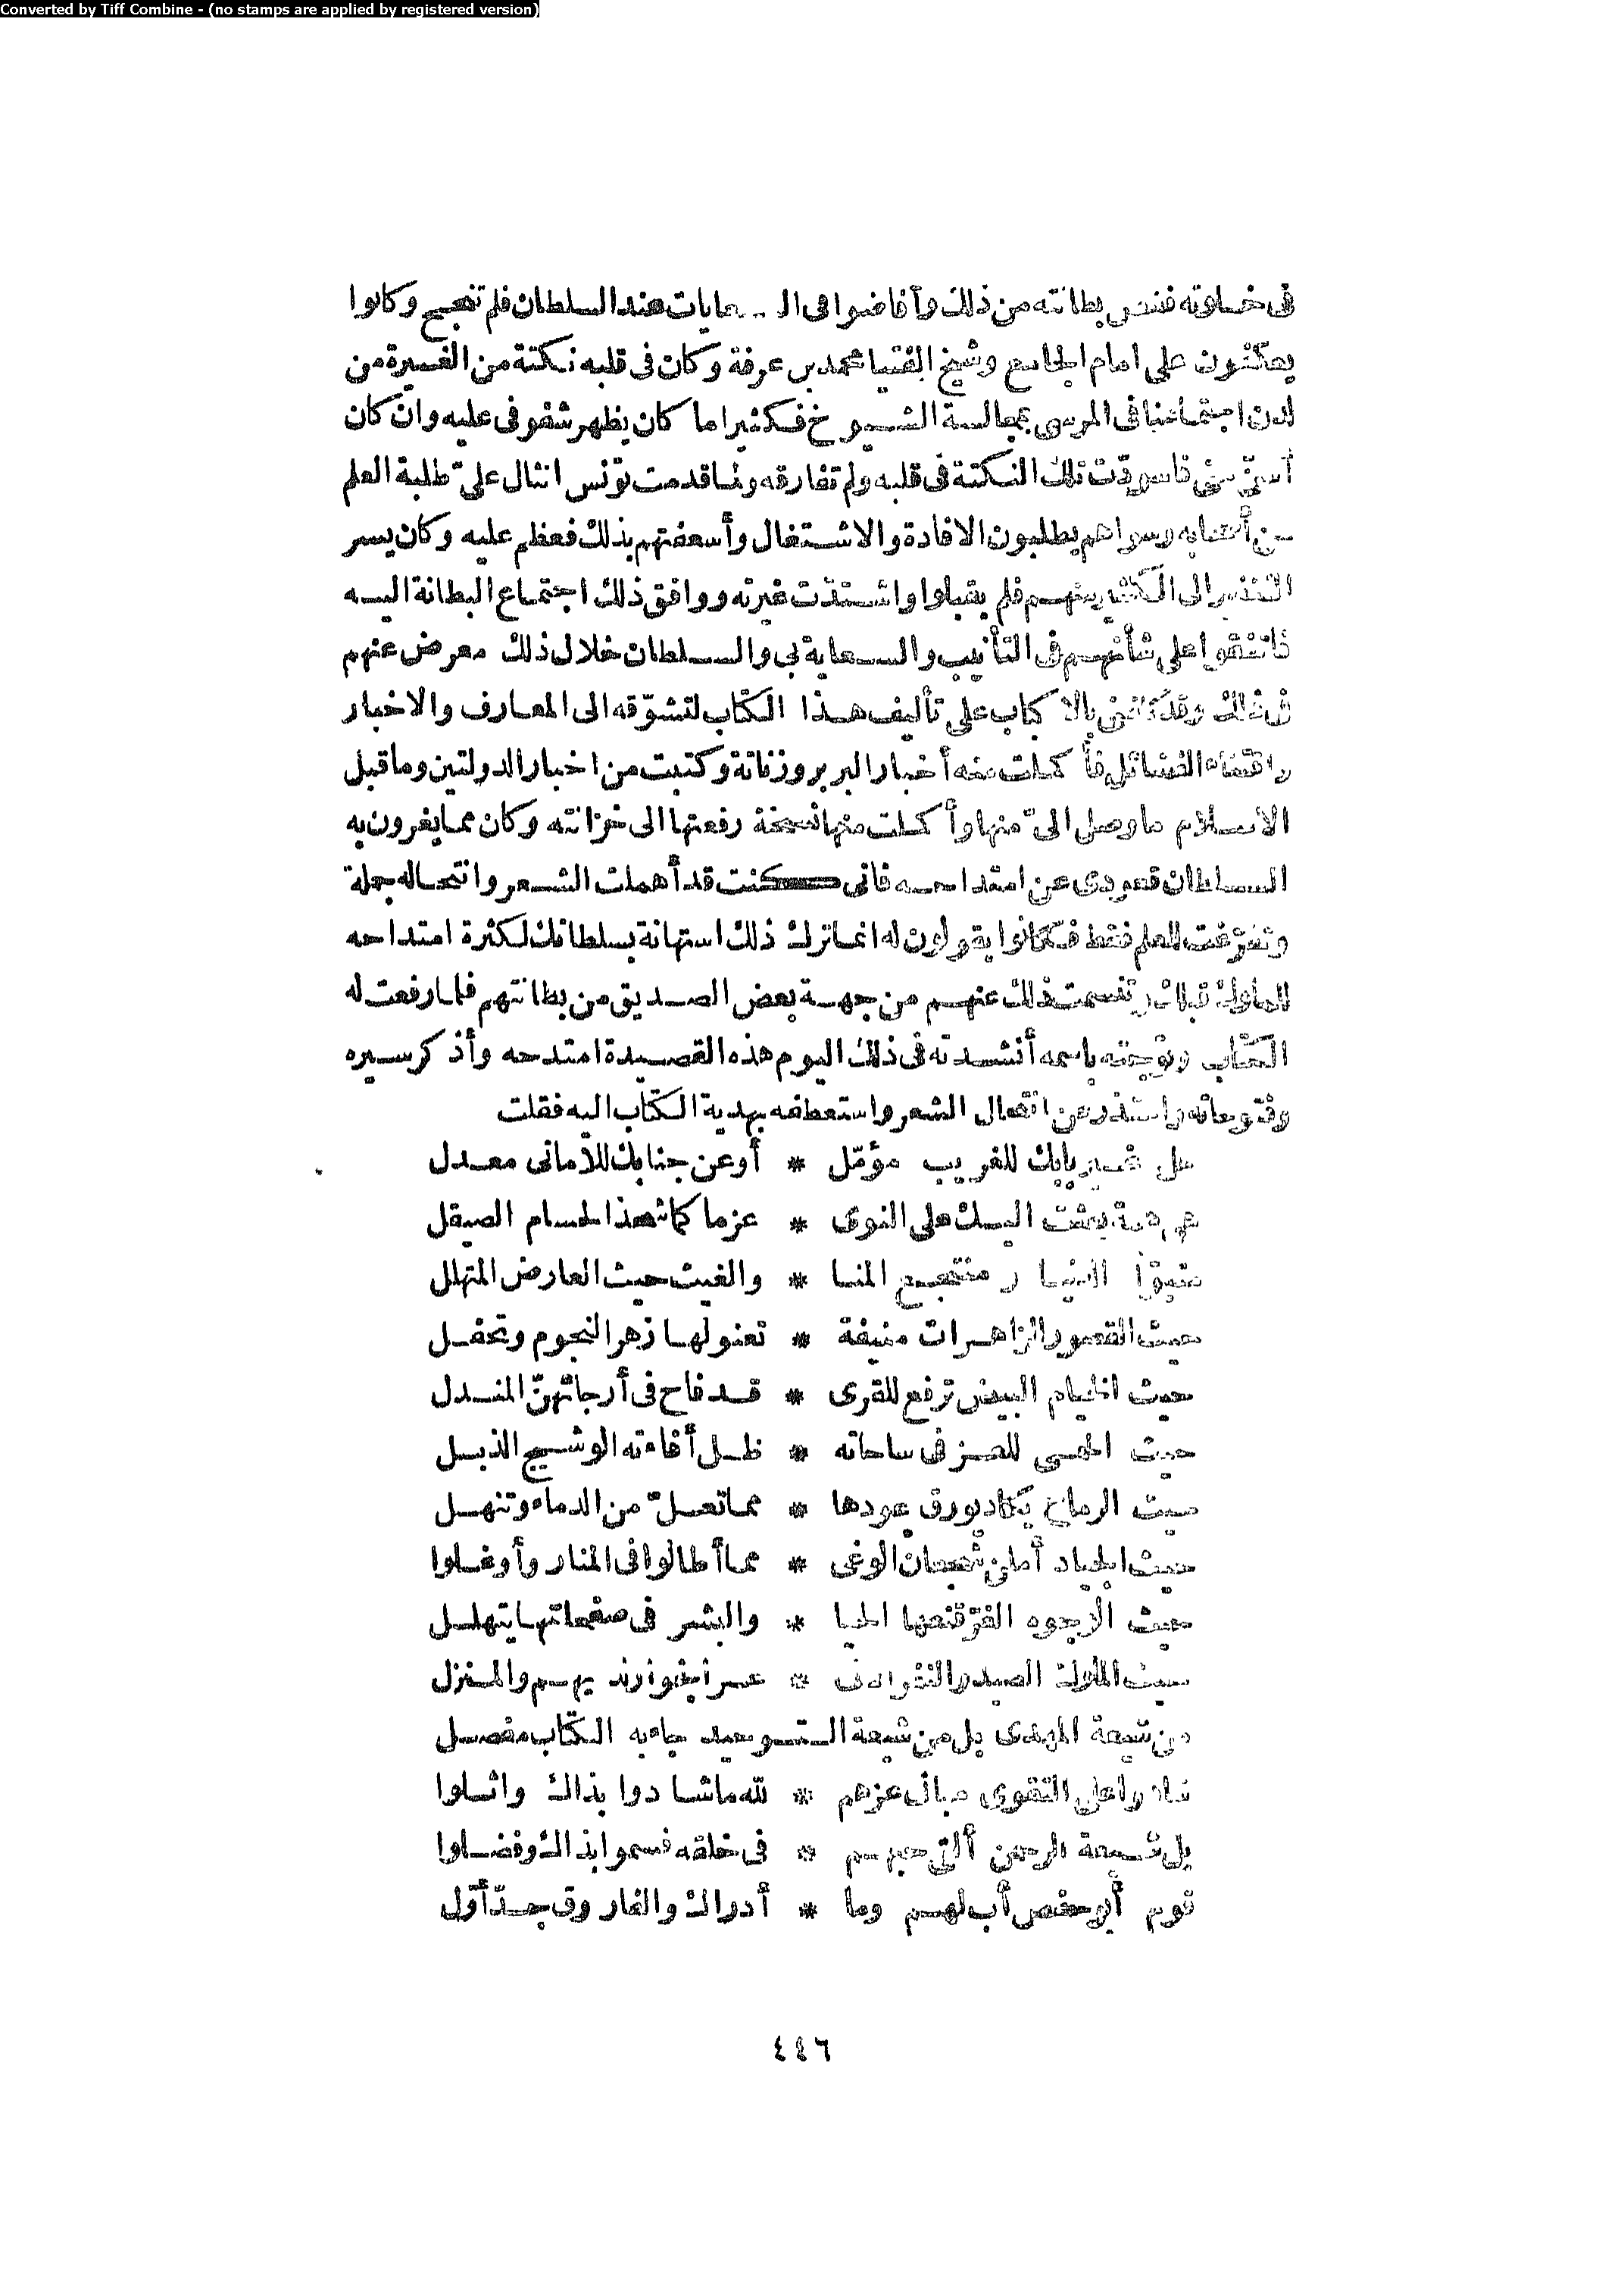 Converted by Tiff Combine - (no stamps are applied by registered version)
فى خلوته فغص بطانته من ذلك وأفاضوا فى السعايات عند السلطان فلم تنجح وكانوا
يعكفون على امام الجامع وشيخ الفتيا محمد بن عرفة وكان فى قلبه نكتة من الغيرة من
لدن اجتماعنا فى المربى بمجالسة الشيوخ فكثيرا ما كان يظهر شفوفى عليه وان كان
أسن منى فاسودّت تلك النكتة فى قلبه ولم تفارقه ولما قدمت تونس انثال علىّ طلبة العلم
من أصحابه وسواهم يطلبون الافادة والاشتغال وأسعفتهم بذلك فعظم عليه وكان يسر
التنفير الى الكثير منهم فلم يقبلوا واشتدّت غيرته ووافق ذلك اجتماع البطانة اليه
فاتفقوا على شأنهم فى التأنيب والسعاية بى والسلطان خلال ذلك معرض عنهم
فى ذلك وقد كلفنى بالاكباب على تأليف هذا الكتاب لتشوّقه الى المعارف والاخبار
واقتناء الفضائل فأكملت منه أخبار البربر وزناتة وكتبت من اخبار الدولتين وما قبل
الاسلام ما وصل الىّ منها وأكملت منها نسخة رفعتها الى خزانته وكان مما يغرون به
السلطان قعودى عن امتداحه فانى كنت قد أهملت الشعر وانتحاله جملة
وتفرّغت للعلم فقط فكانوا يقولون له انما ترك ذلك استهانة بسلطانك لكثرة امتداحه
للملوك قبلك وتنسمت ذلك عنهم من جهة بعض الصديق من بطانتهم فلما رفعت له
الكتاب وتوّجته باسمه أنشدته فى ذلك اليوم هذه القصيدة امتدحه وأذكر سيره
وفتوحاته وأعتذر عن انتحال الشعر وأستعطفه بهدية الكتاب اليه فقلت
هل غير بابك للغريب مؤمّل * أو عن جنابك للأمانى معدل
هى همة بعثت اليك على النوى * عزما كما شحذ الحسام الصيقل
متبوّأ الدنيا ومنتجع المنا * والغيث حيث العارض المتهلل
حيث القصور الزاهرات منيفة * تعنو لها زهر النجوم وتحفل
حيث الخيام البيض ترفع للقرى * قد فاح فى أرجائهنّ المندل
حيث الحمى للعز فى ساحاته * ظل أفاءته الوشيج الذبل
حيث الرماح يكاد يورق عودها * مما تعلّ من الدماء وتنهل
حيث الجياد أملن شجعان الوغى * مما أطالوا فى المنار وأوغلوا
حيث الاوجوه الغرّ قنعها الحيا * والبشر فى صفحاتها يتهلل
حيث الملوك الصيد والنفر الالى * عز الجوار لديهم والمنزل
من شيعة المهدى بل من شيعة التوحيد جاء به الكتاب مفصل
شادوا على التقوى مبانى عزهم * لله ما شادوا بذاك واثلوا
بل شيعة الرحمن ألقى حبهم * فى خلقه فسموا بذاك وفضلوا
قوم أبو حفص أب لهم وما * أدراك والفاروق جدّ أوّل
٤٤٦